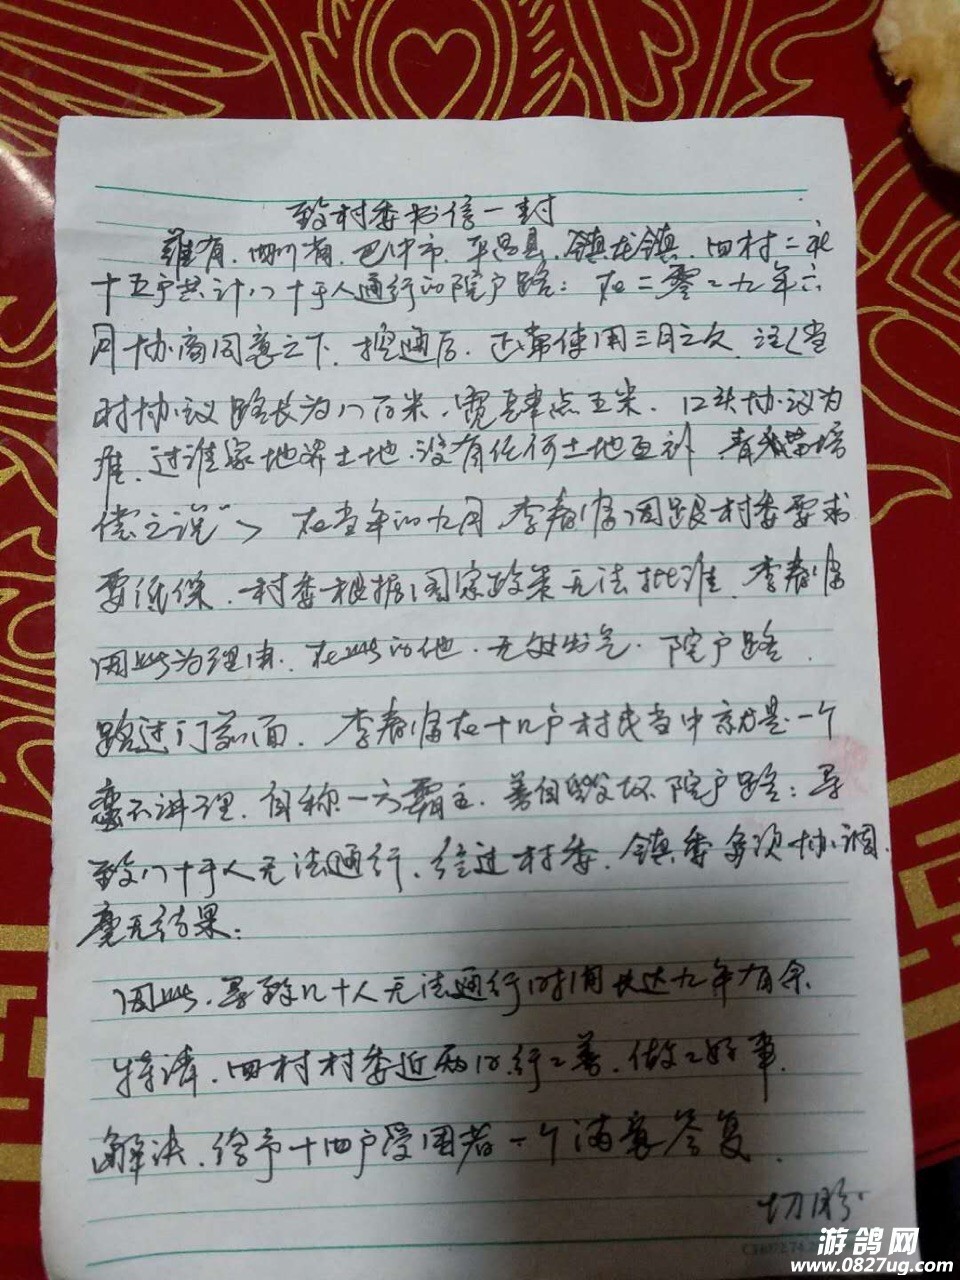 致村委书信一封
兹有.四川省.巴中市.平昌县.镇龙镇.四村二社
十五户共计八十多人通行的院户路：在二零一九年六
月协商同意之下.挖通后.正常使用三月之久.注<当
时协议路长为八百米.宽肆点五米.口头协议为
准.过谁家地界土地.没有任何土地互补.青苗赔
偿之说">在当年的九月.李春 因跟村委要求
要低保.村委根据国家政策无法批准.李春
因此为理由.在此的他.无处出气.院户路.
路过门前面.李春 在十几户村民当中就是一个
蛮不讲理.自称一方霸主.善自毁坏院户路：导
致八十多人无法通行.经过村委.镇委多次协调.
毫无结果：
因此.导致几十人无法通行时间长达九年有余.
特请.四村村委近两日.行行善.做做好事.
解决.给予十四户受困者一个满意答复.
切盼
游鸽网
www.0827ug.com